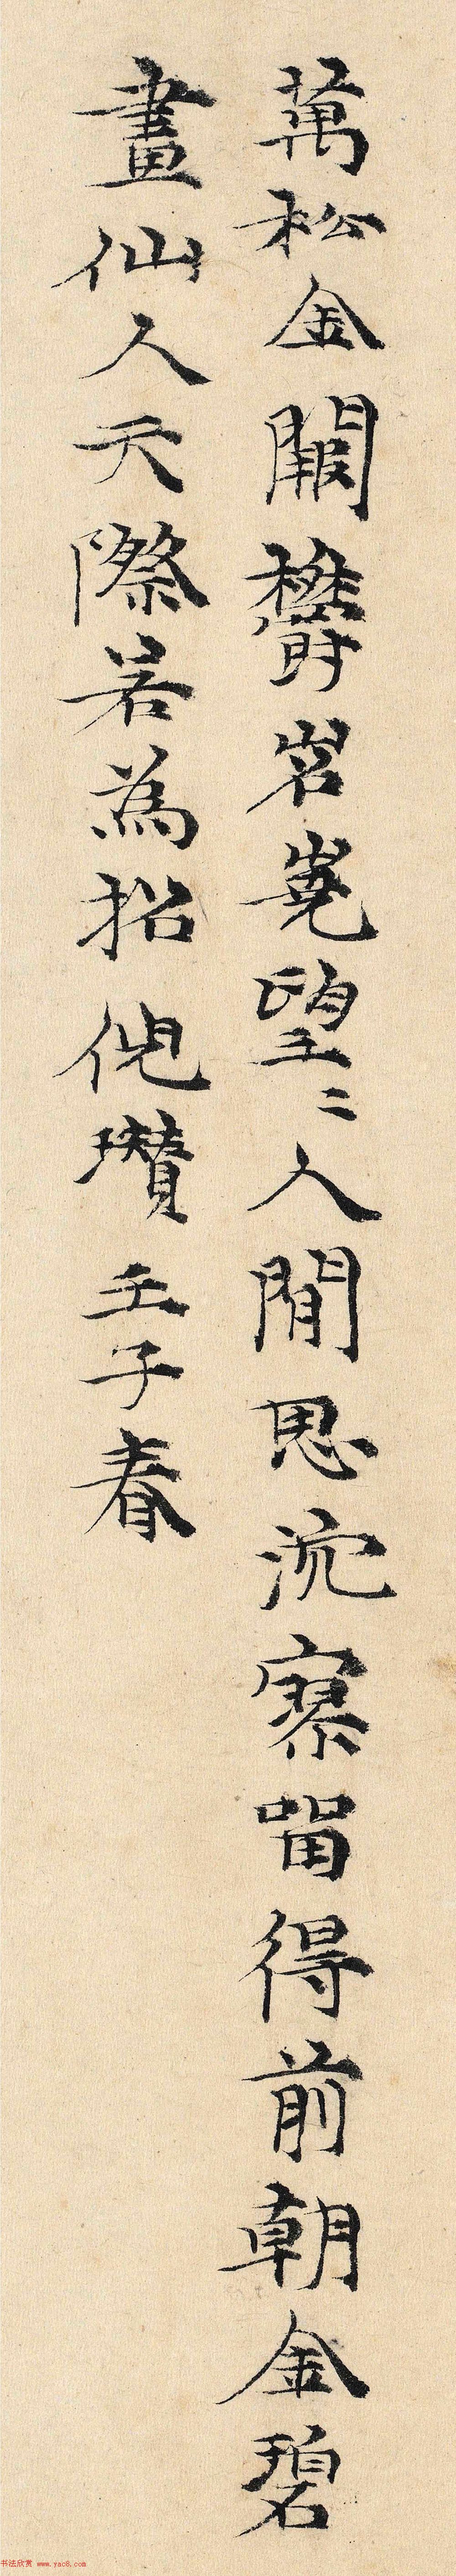 萬松金闕鬱岧嶤望〻人閒思沉寥留得前朝金碧
畫仙人天際若為招倪瓚壬子春
书法欣赏 www.yac8.com